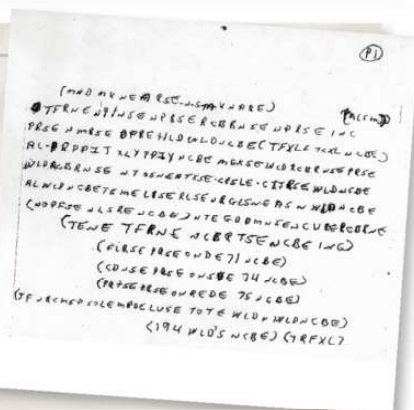 P1
(MND MKNEARSE-N-S-M-KNARE) (ACSM)
TFRNENPINSENPRSERCBRNSENPRSEINC
PRSENMRSEOPREHLDWLDNCBE(TFXLFTCXLNCBE)
AL-PRPPITXLYPPIYNCBEMGKSEWLDRCBRNSEPRSE
WLDRCBRNSENTSSNENTXSE-CRSLE-CITRSEWLDNCBE
ALWLDNCBETSMELRSERLSEURGLSNEASNWLDNCBE
(NOPFSENLSRENCBE)NTEGDDMNSENCURERCBRNE
(TENE TFRNE NCBRTSENCBE INC)
(FLRSE PRSE ONDE 71 NCBE)
(CDNSE PRSE ONSDE 74 NCBE)
(PRTSE PRSE ONREDE 75 NCBE)
(TFNRCMSPSOLEMRDELUSE TOTE WLDN WLDNCBE)
(194 WLD'S NCBE) (TRFXL)